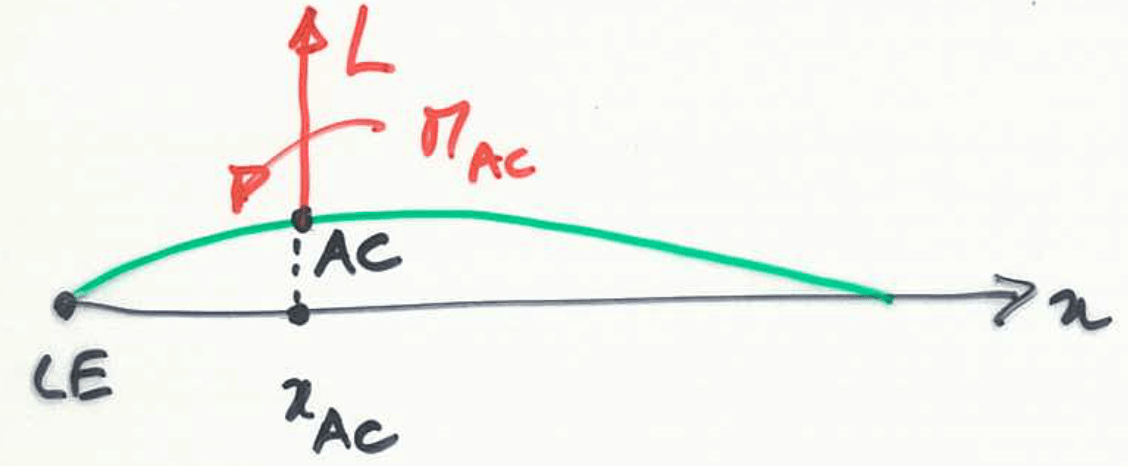 L
M_AC
AC
x
LE
x_AC